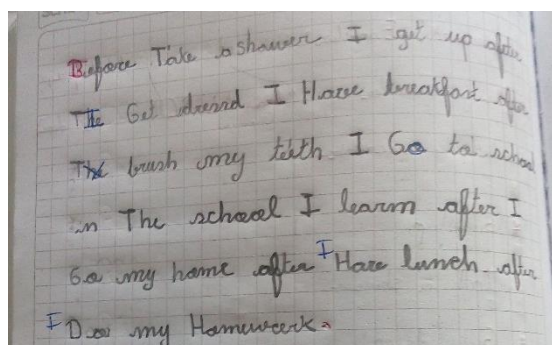 Before Take a shower I get up after
The Get dressd I Have breakfast after
The brush my teeth I Go to school
in The school I learm after I
Go my home after I Have lunch after
I Do my Homework.